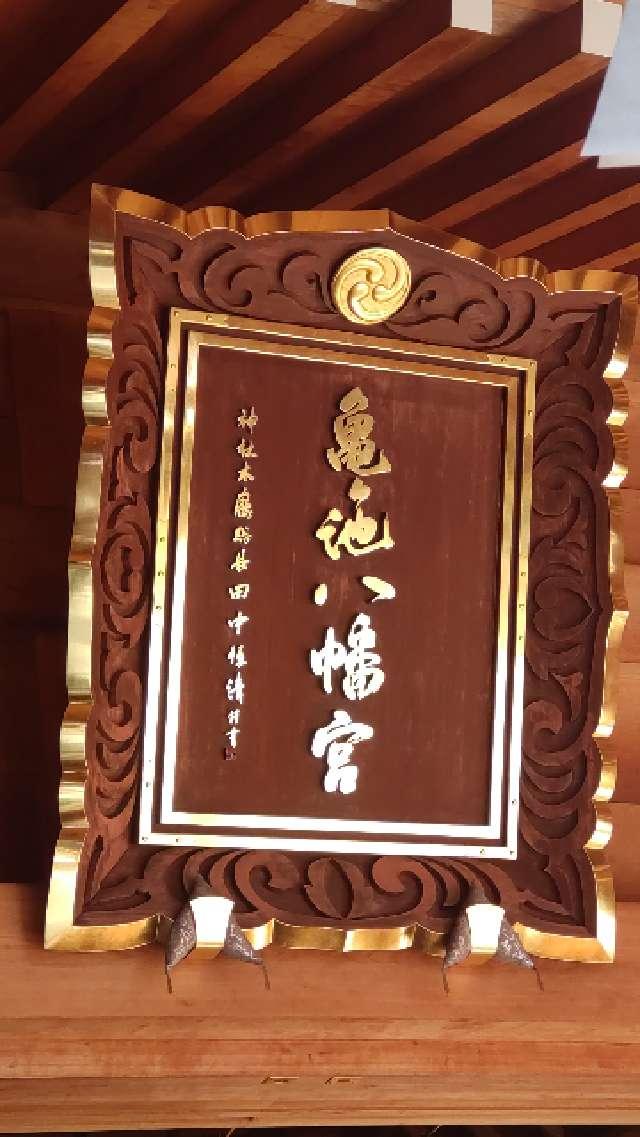 亀池八幡宮
神社本廳総長田中恆清謹書